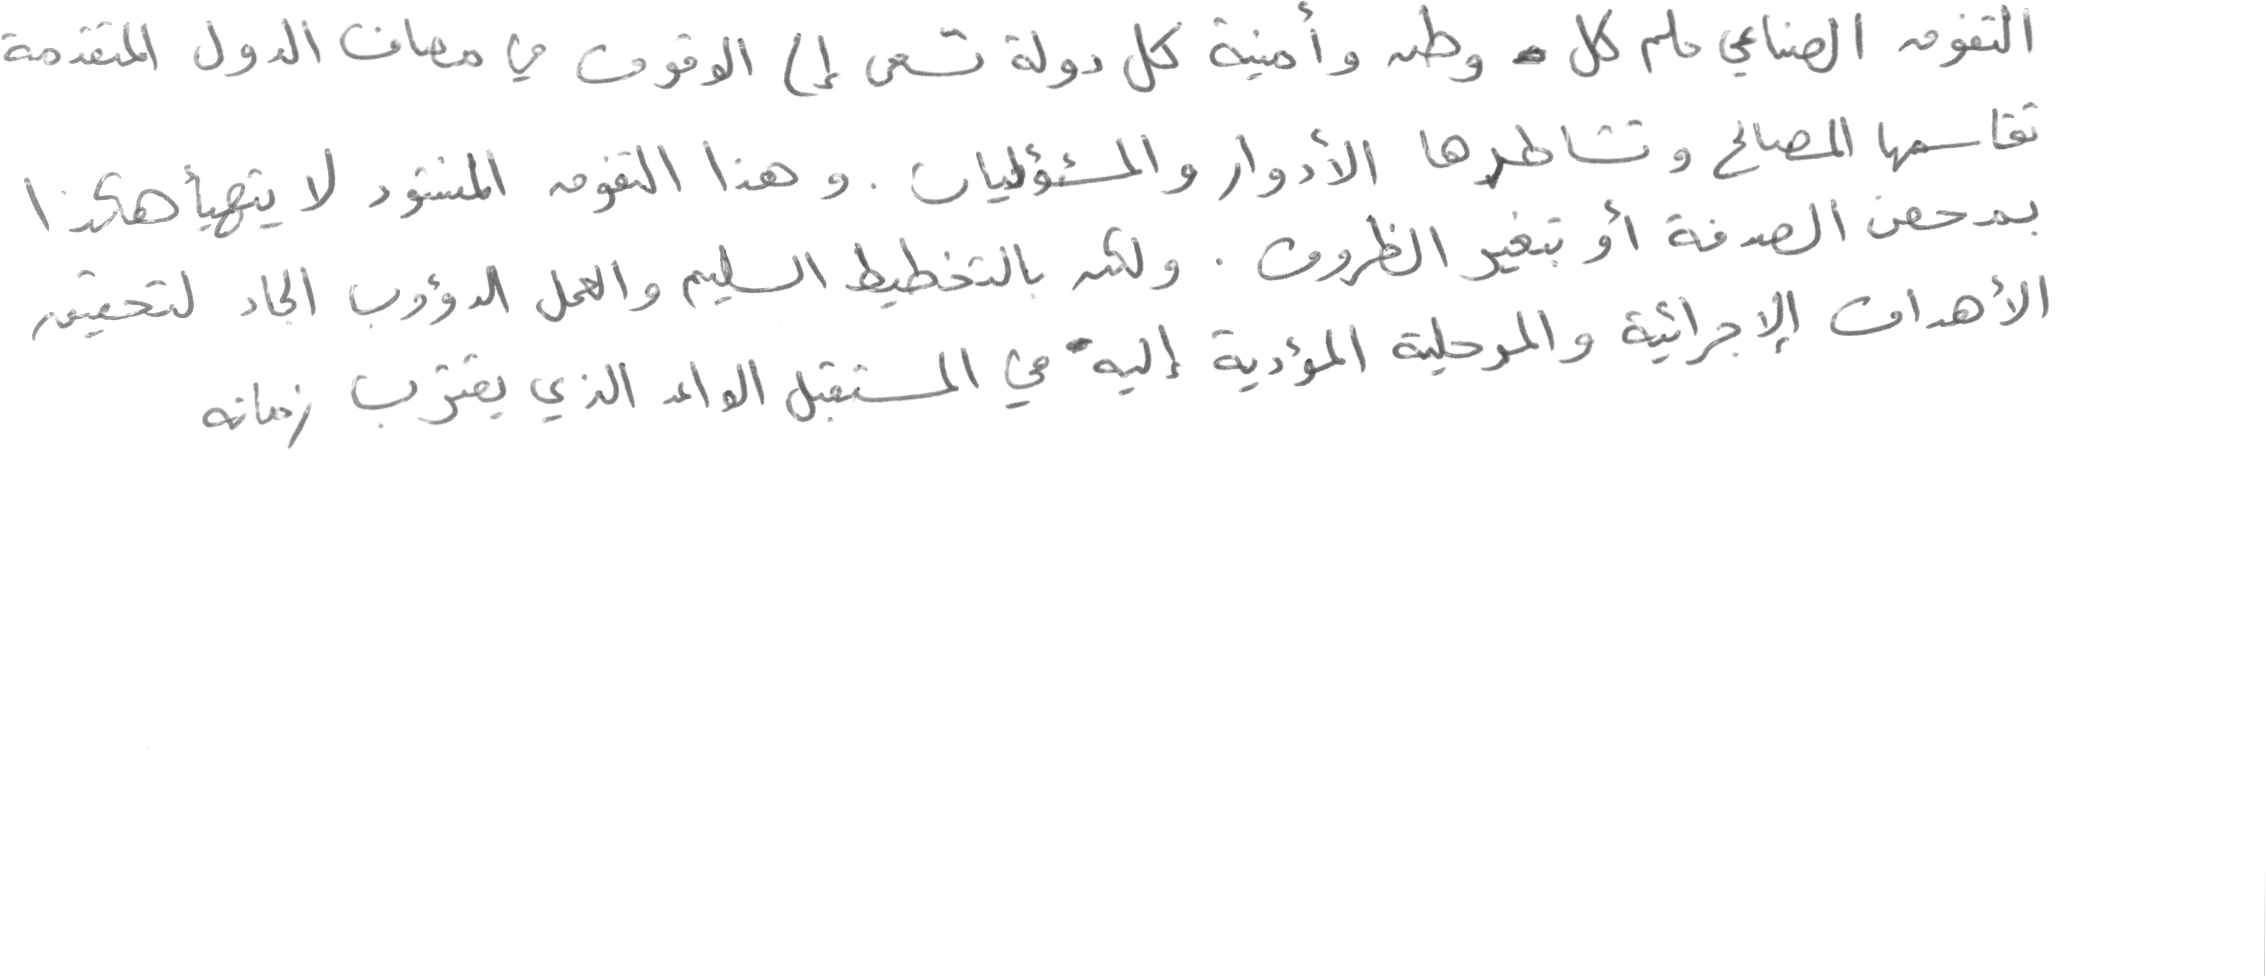 التفوق الصناعي حلم كل وطن وأمنية كل دولة تسعى إلى الوقوف في مصاف الدول المتقدمة
تقاسمها المصالح وتشاطرها الأدوار والمسئوليات . وهذا التفوق المنشود لا يتهيأ هكذا
بمحض الصدفة أو بتغير الظروف . ولكن بالتخطيط السليم والعمل الدؤوب الجاد لتحقيق
الأهداف الإجرائية والمرحلية المؤدية إليه في المستقبل الواعد الذي يقترب زمانه